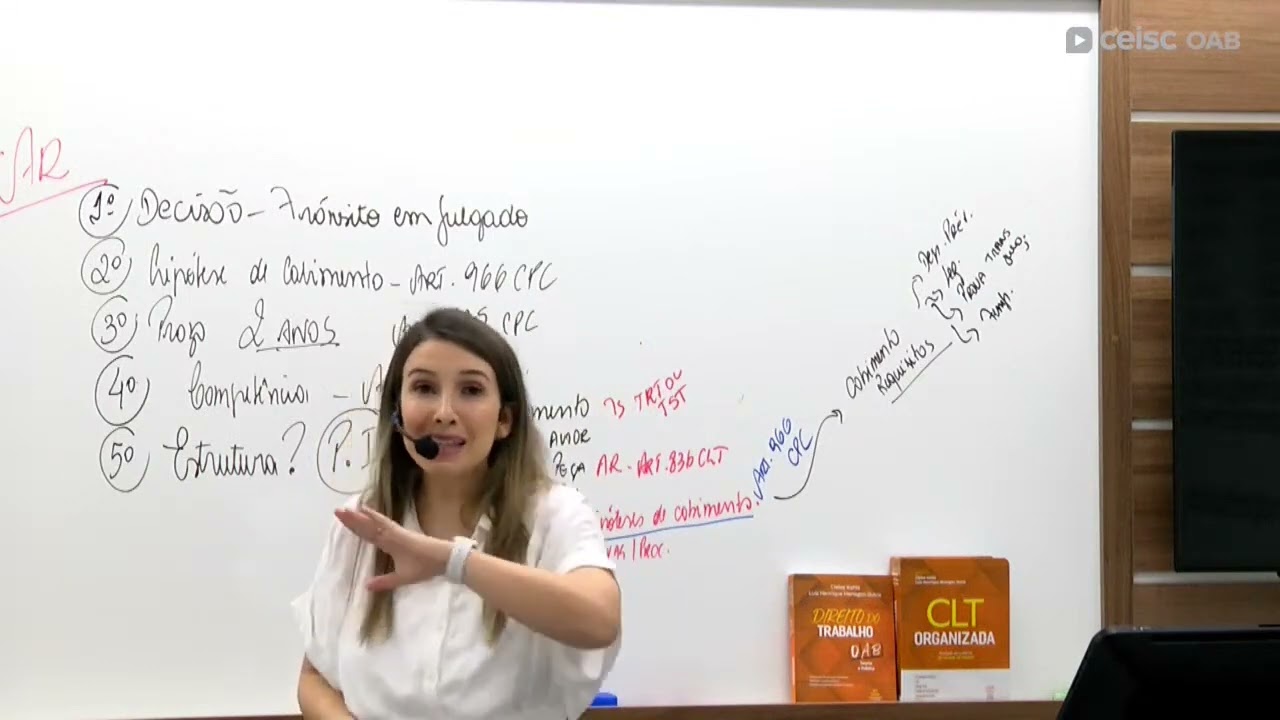 ceisc OAB
AR
1º Decisão - Trânsito em julgado
2º Hipótese de Cabimento - ART. 966 CPC
3º Prazo 2 ANOS CPC
4º Competência -
5º Estrutura? P.I
mento TRT OU
TST
PEÇA AR - ART. 836 CLT
de cabimento.
ART. 966
CPC
Cabimento
Requisitos
Dep. Prév.
PROVA TRANS
DIREITO DO
TRABALHO
OAB
CLT
ORGANIZADA